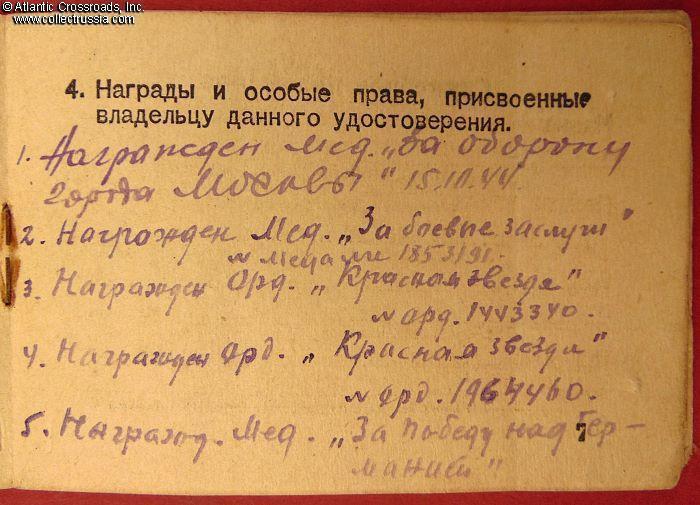 © Atlantic Crossroads, Inc.
www.collectrussia.com
4. Награды и особые права, присвоенные
владельцу данного удостоверения.
1. Награжден Мед. „За оборону
города Москвы" 15.III.44.
2. Награжден Мед. „За боевые заслуги"
№ медали 1853191.
3. Награжден Орд. „Красная звезда"
№ орд. 1443340.
4. Награжден орд. „Красная звезда"
№ орд. 1964460.
5. Награжд. Мед. „За Победу над Гер-
манией"
7